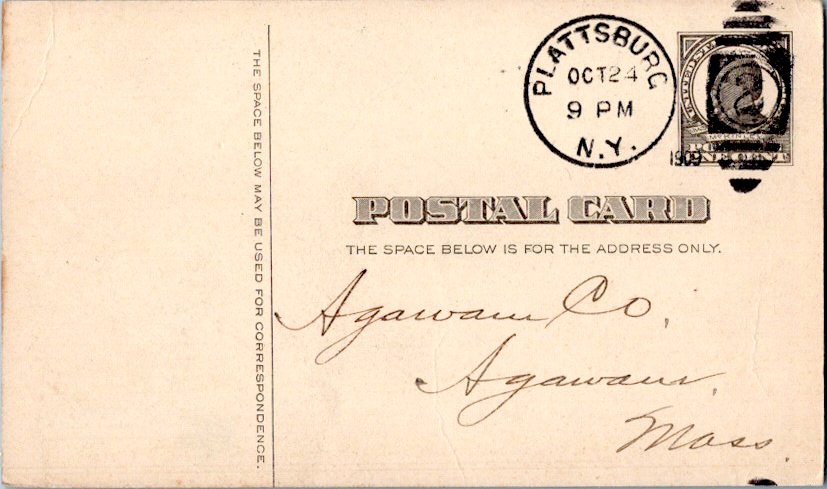 THE SPACE BELOW MAY BE USED FOR CORRESPONDENCE.
PLATTSBURG
OCT 24
9 PM
N.Y.
1909
2
McKINLEY
POSTAL CARD
THE SPACE BELOW IS FOR THE ADDRESS ONLY.
Agawam Co,
Agawam,
Mass.